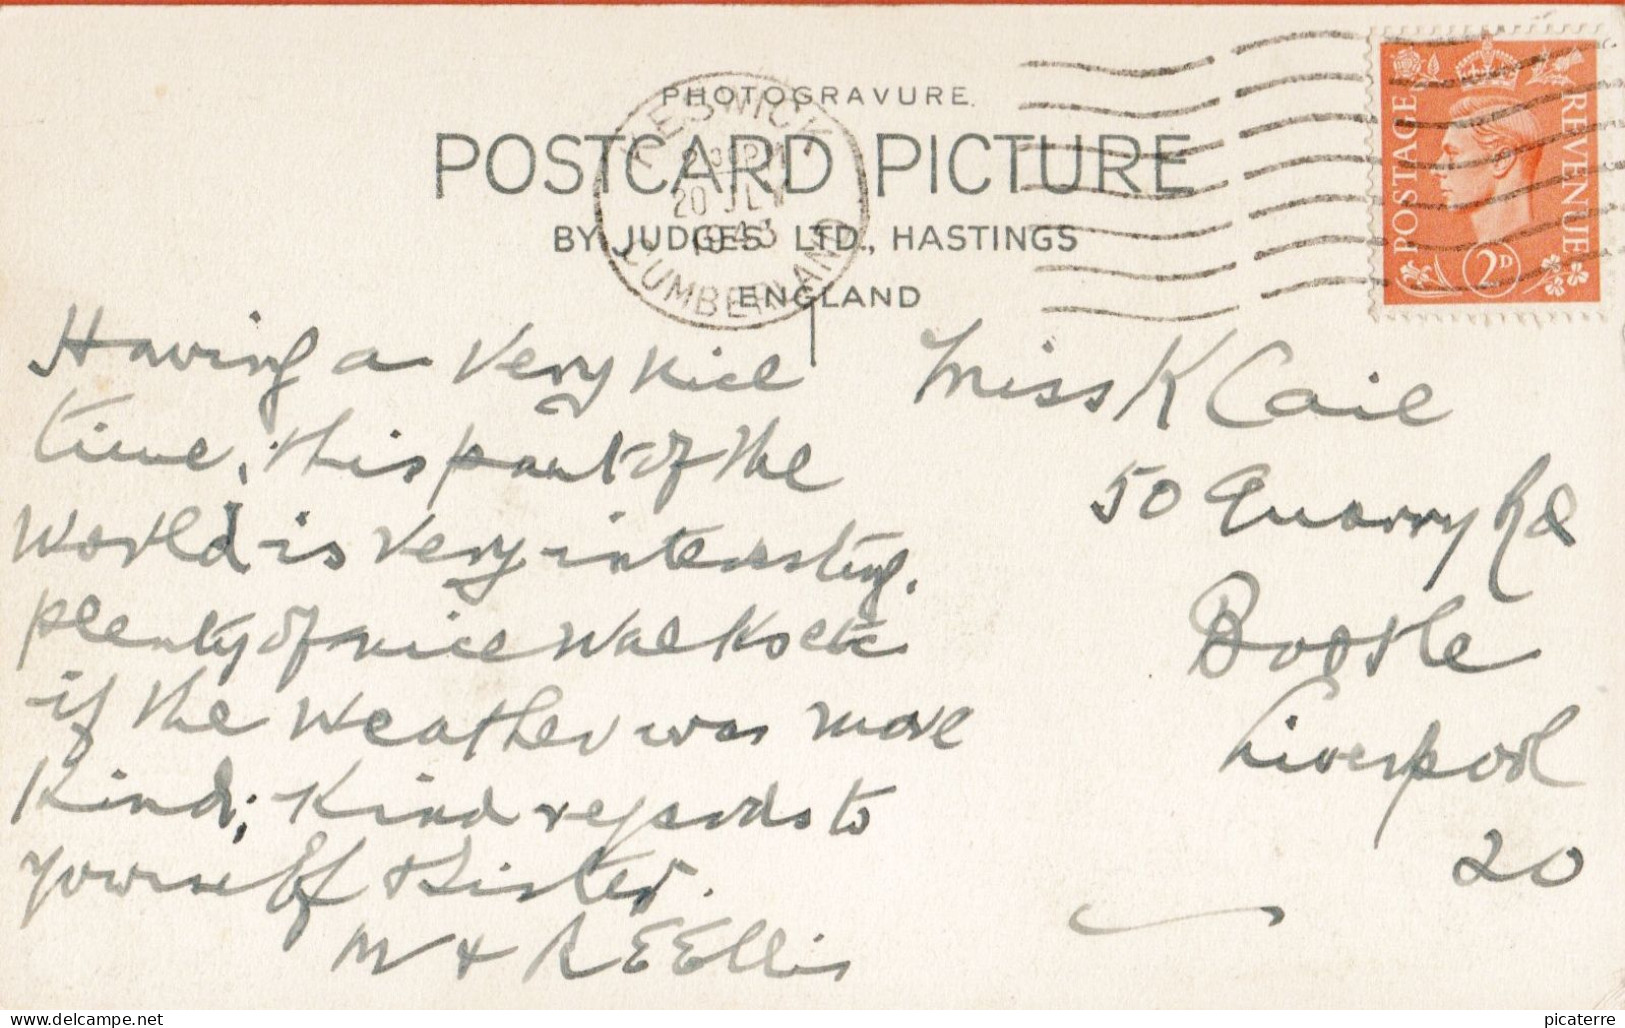 PHOTOGRAVURE.
POSTCARD PICTURE
BY JUDGES LTD., HASTINGS
ENGLAND
KESWICK
2 30 PM
20 JLY
1943
CUMBERLAND
POSTAGE
REVENUE
2D
Having a very nice
time, this part of the
World is very interesting.
plenty of nice walks etc
if the weather was more
kind; kind regards to
yourself & sister.
M & R E Ellis
Miss K Cail
50 Quarry Rd
Bootle
Liverpool
20
delcampe.net
picaterre